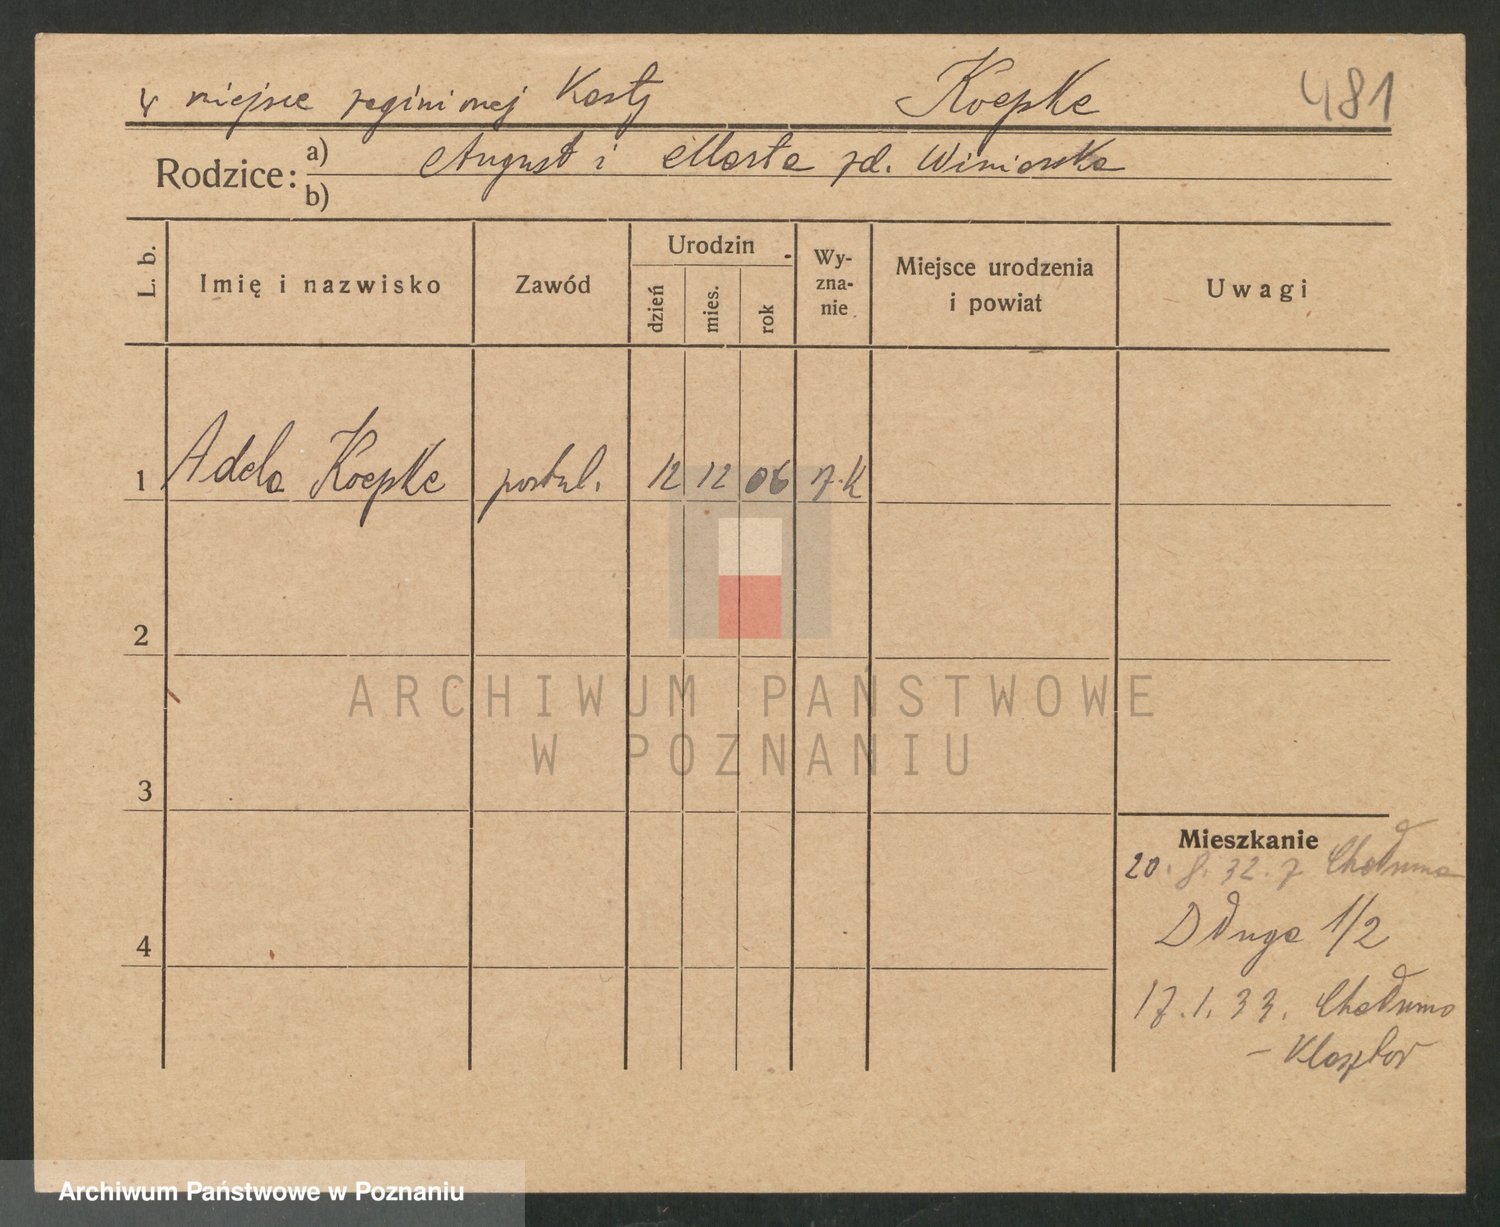 w miejsce zaginionej Karty Koepke 481
Rodzice: a) August i Marta zd. Winiarska
b)
L. b. Imię i nazwisko Zawód Urodzin dzień mies. rok Wy-zna-nie Miejsce urodzenia i powiat Uwagi
1 Adela Koepke postul. 12 12 06 rz.K
2
3
4
Mieszkanie
20. 8. 32. z Chełmna
Długa 1/2
17. 1. 33. Chełmno
– Klasztor
ARCHIWUM PAŃSTWOWE
W POZNANIU
Archiwum Państwowe w Poznaniu